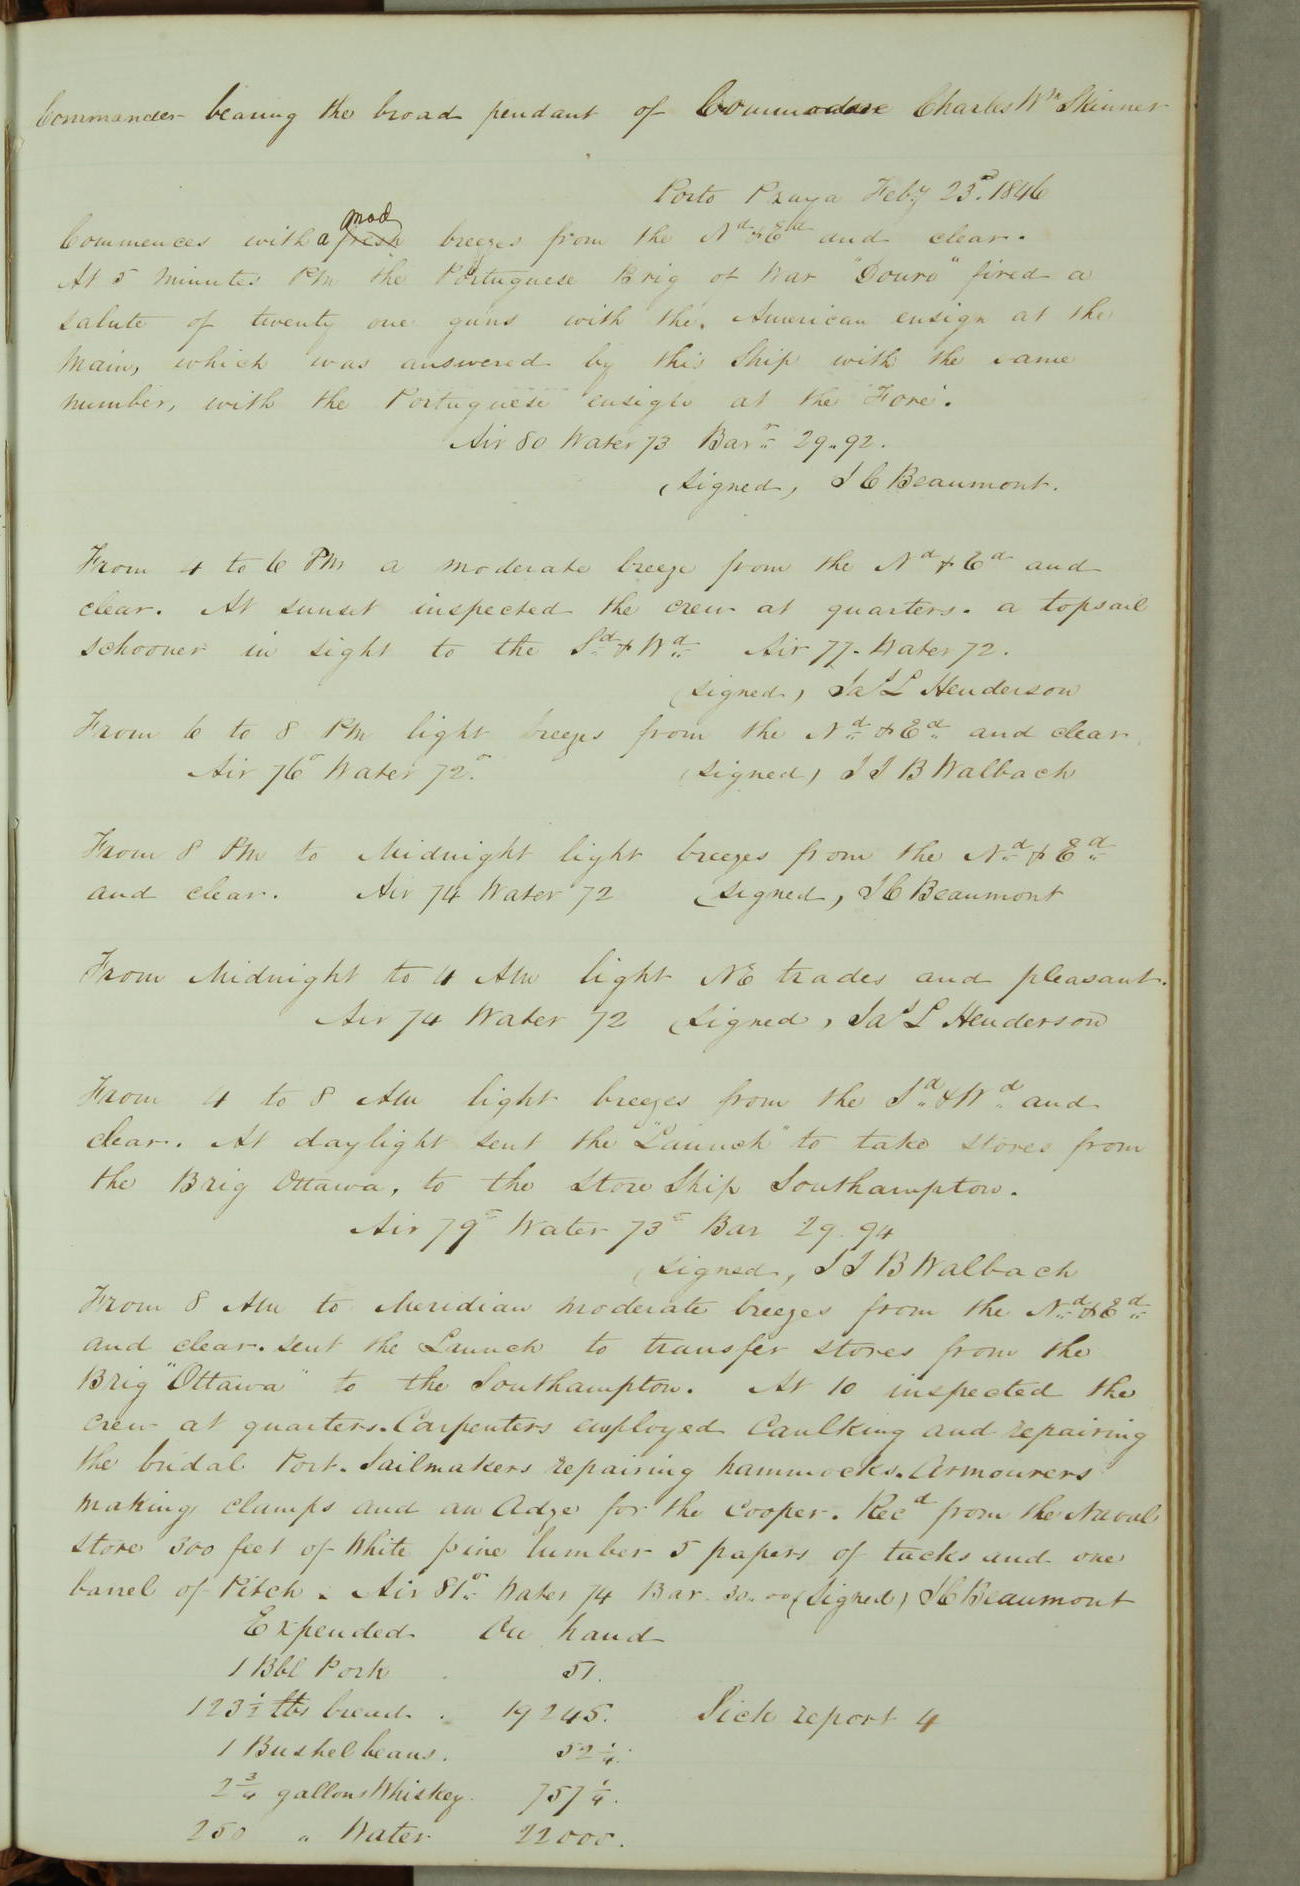 Commander bearing the broad pendant of Commodore Charles Wm Skinner
Porto Praya Feby 23d. 1846
Commences with a fresh mod breezes from the Nd & Ed and clear.
At 5 minutes PM the Portuguese Brig of War "Douro" fired a
salute of twenty one guns with the American ensign at the
Main, which was answered by this Ship with the same
number, with the Portuguese ensign at the Fore.
Air 80 Water 73 Barr 29..92.
(signed, J C Beaumont.
From 4 to 6 PM a moderate breeze from the Nd & Ed and
clear. At sunset inspected the crew at quarters. a topsail
schooner in sight to the Sd & Wd Air 77. Water 72.
(signed) Jas L Henderson
From 6 to 8 PM light breezes from the Nd & Ed and clear
Air 76° Water 72°. (signed) J J B Walbach
From 8 PM to Midnight light breezes from the Nd & Ed
and clear. Air 74 Water 72 (signed, J C Beaumont
From Midnight to 4 AM light NE trades and pleasant.
Air 74 Water 72 (signed, Jas L Henderson
From 4 to 8 AM light breezes from the Sd & Wd and
clear. At daylight sent the "Launch" to take stores from
the Brig Ottawa, to the Store Ship Southampton.
Air 79° Water 73° Bar 29.94
(signed, J J B Walbach
From 8 AM to Meridian moderate breezes from the Nd & Ed
and clear. sent the Launch to transfer stores from the
Brig "Ottawa" to the Southampton. At 10 inspected the
crew at quarters. Carpenters employed Caulking and repairing
the bridal Port. Sailmakers repairing hammocks. Armourers
making clamps and an Adze for the Cooper. Recd from the Naval
store 300 feet of White pine lumber 5 papers of tacks and one
barrel of Pitch. Air 81° Water 74 Bar. 30..00 (signed) J C Beaumont
Expended On hand
1 Bbl Pork . 51.
123 1/2 lbs bread . 19245. Sick report 4
1 Bushel beans. 52 1/4.
2 3/4 gallons Whiskey. 757 1/4.
250 " Water 22000.